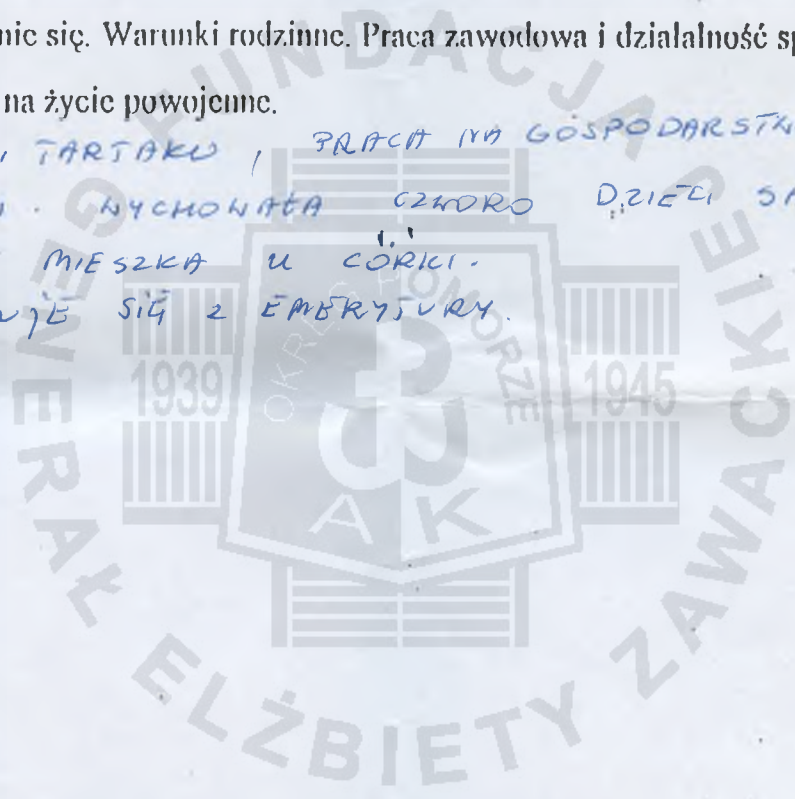 nie się. Warunki rodzinne. Praca zawodowa i działalność sp
na życie powojenne.
, TARTAKU , PRACA NA GOSPODARSTW
. WYCHOWAŁA CZWORO DZIECI SA
MIESZKA U CÓRKI.
UJE SIĘ Z EMERYTURY.
FUNDACJA GENERAŁ ELŻBIETY ZAWACKIEJ
OKRĘG POMORZE
1939 1945
AK